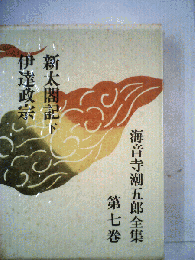 新太閤記 下
伊達政宗
海音寺潮五郎全集
第七巻